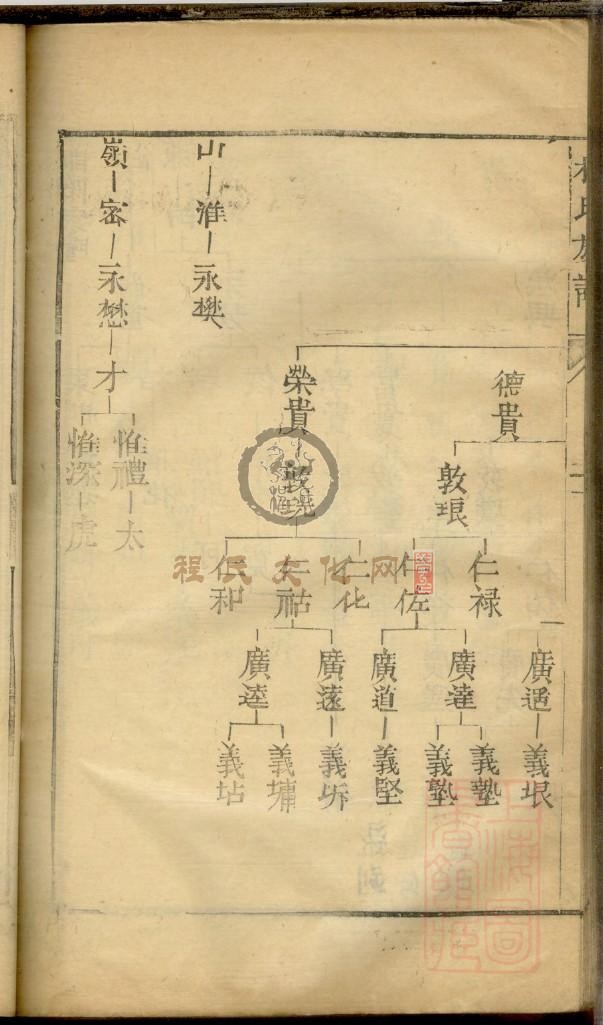 德貴
敦琅
仁禄
仁佐
廣遇
廣達
廣道
義垠
義塾
義墊
義堅
榮貴
仁化
仁祜
仁和
廣遠
廣逵
義坼
義墉
義坫
山
淮
永樊
嶺
密
永懋
才
惟禮
太
惟深
虎
程氏文化网